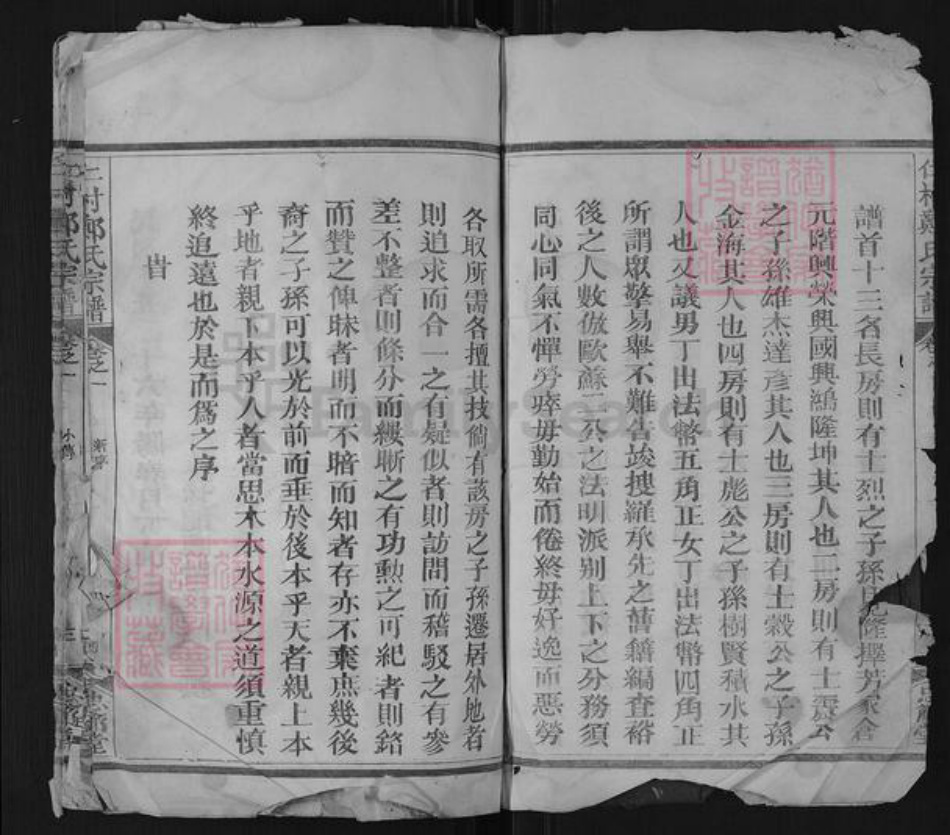 譜首十三名長房則有士烈之子孫隆擇芳家倉
元階興榮興國興鴻隆坤其人也二房則有士霨公
之子孫雄杰達彥其人也三房則有士毅公之子孫
金海其人也四房則有士彪公之子孫樹賢積水其
人也又議男丁出法幣五角正女丁出法幣四角正
所謂眾擎易舉不難告竣搜羅承先之舊籍編查裕
後之人數倣歐蘇二公之法明派别上下之分務須
同心同氣不憚勞瘁毋勤始而倦終毋好逸而惡勞
各取所需各擅其技倘有該房之子孫遷居外地者
則追求而合一之有疑似者則訪問而稽駁之有參
差不整者則條分而縷晰之有功勳之可紀者則銘
而贊之俾昧者明而不暗而知者存亦不棄庶幾後
裔之子孫可以光於前而垂於後本乎天者親上本
乎地者親下本乎人者當思木本水源之道須重慎
終追遠也於是而為之序
旹
村鄭氏宗譜 卷之一
FamilySearch